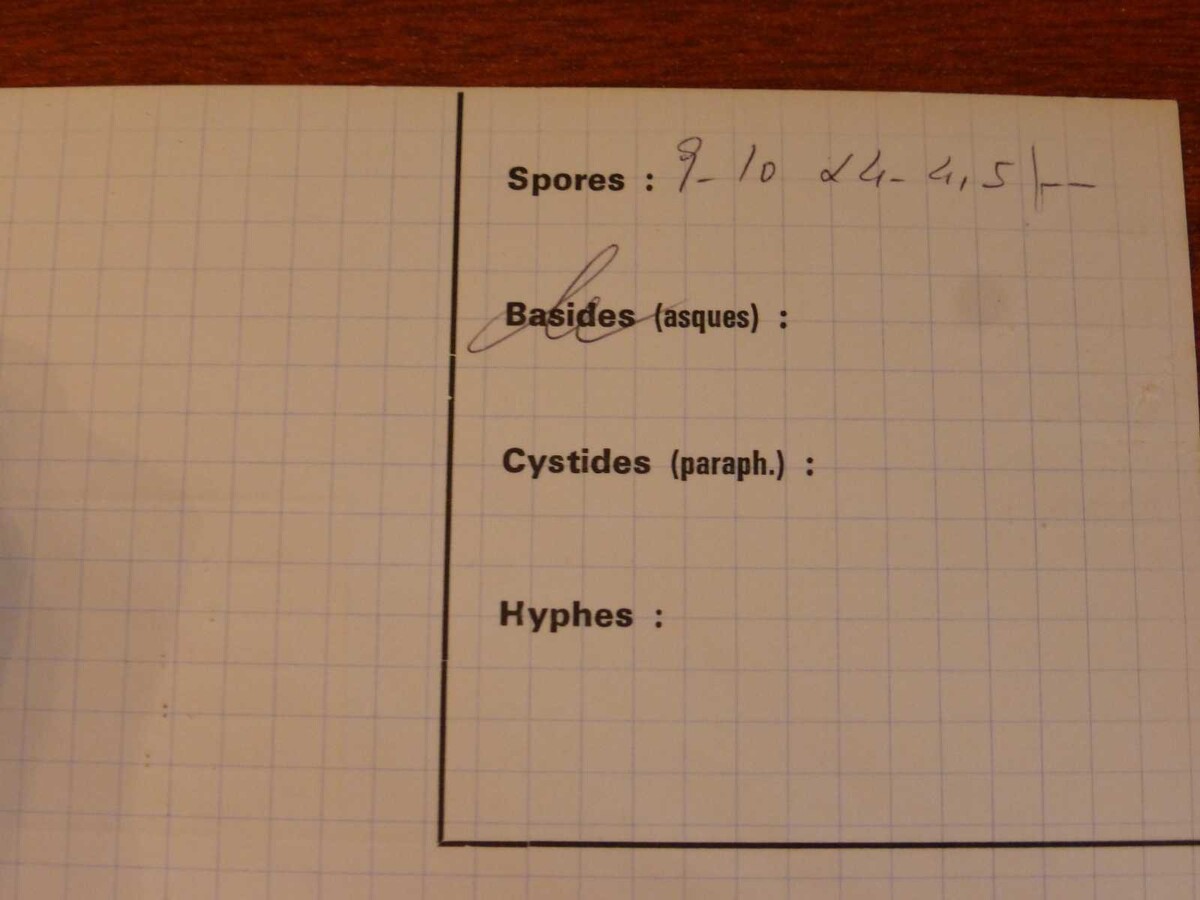 Spores : 9-10 x 4-4,5 µ
Basides (asques) :
Cystides (paraph.) :
Hyphes :